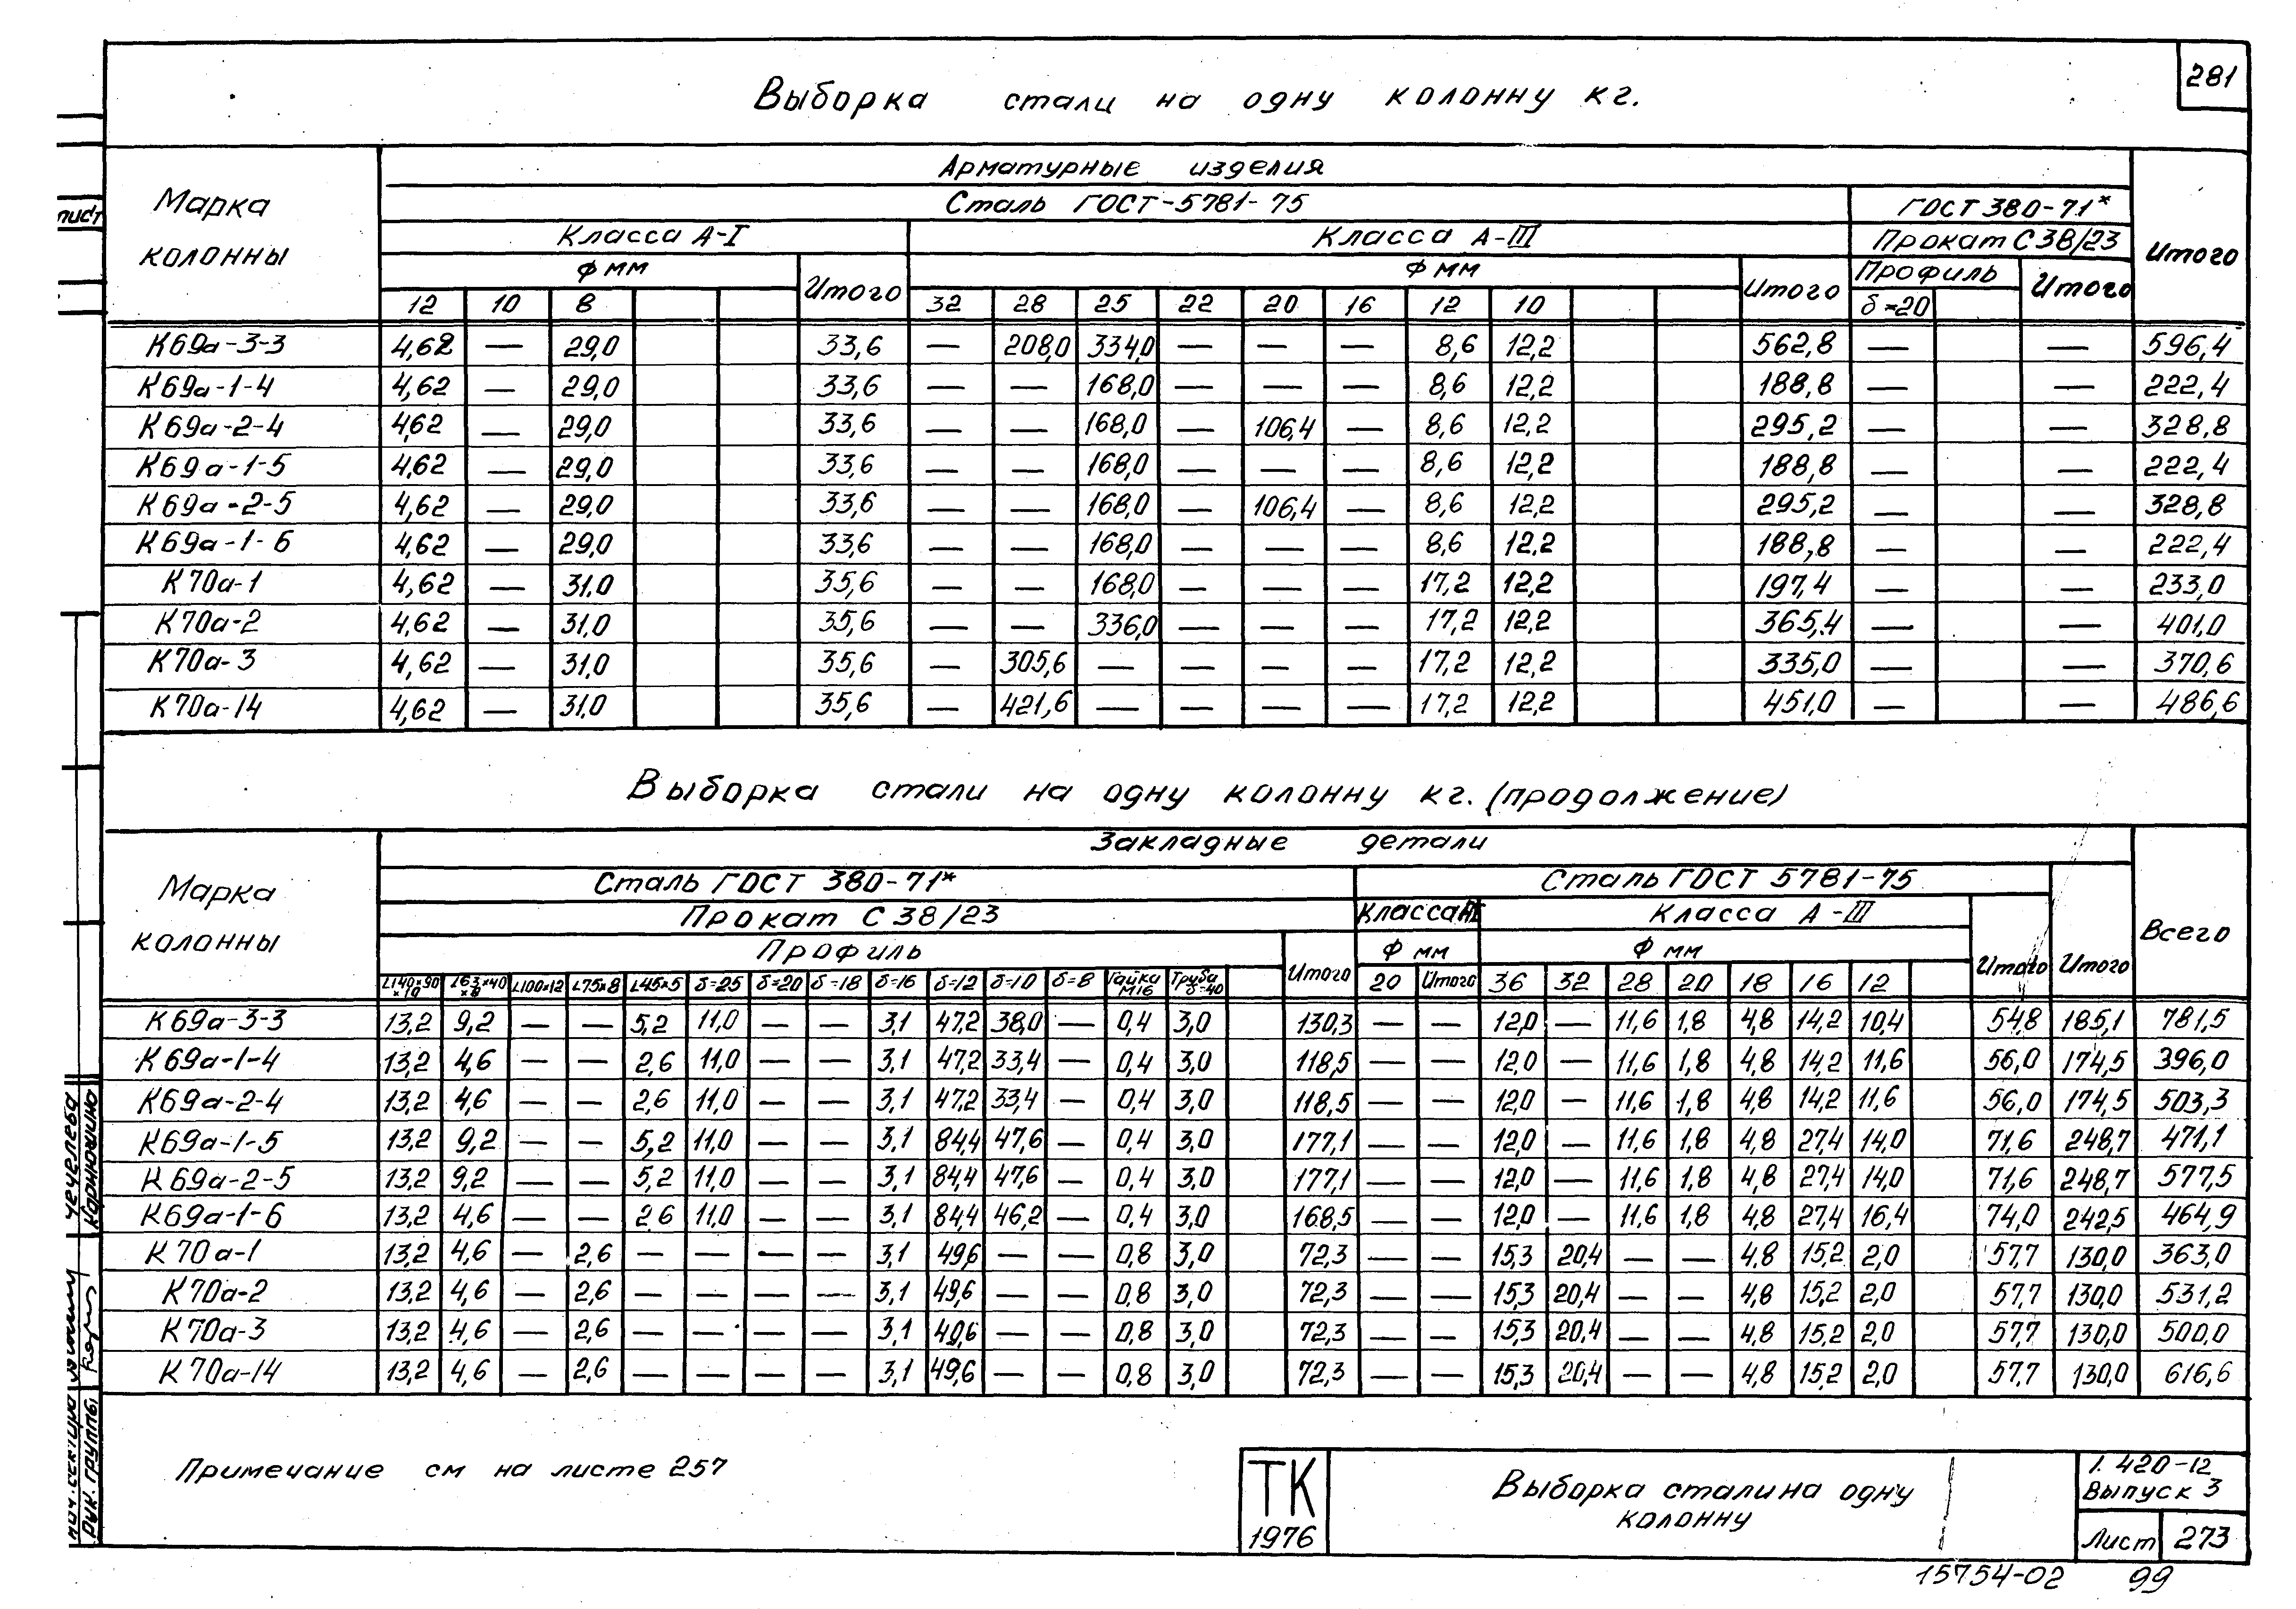 281
Выборка стали на одну колонну кг.
Марка колонны
Арматурные изделия
Итого
Сталь ГОСТ-5781-75
ГОСТ 380-71*
Класса А-I
Класса А-III
Прокат С38/23
Ф мм
Итого
Ф мм
Итого
Профиль
Итого
12 10 8 32 28 25 22 20 16 12 10 δ=20
К69а-3-3 4,62 — 29,0 33,6 — 208,0 334,0 — — — 8,6 12,2 562,8 — — 596,4
К69а-1-4 4,62 — 29,0 33,6 — — 168,0 — — — 8,6 12,2 188,8 — — 222,4
К69а-2-4 4,62 — 29,0 33,6 — — 168,0 — 106,4 — 8,6 12,2 295,2 — — 328,8
К69а-1-5 4,62 — 29,0 33,6 — — 168,0 — — — 8,6 12,2 188,8 — — 222,4
К69а-2-5 4,62 — 29,0 33,6 — — 168,0 — 106,4 — 8,6 12,2 295,2 — — 328,8
К69а-1-6 4,62 — 29,0 33,6 — — 168,0 — — — 8,6 12,2 188,8 — — 222,4
К70а-1 4,62 — 31,0 35,6 — — 168,0 — — — 17,2 12,2 197,4 — — 233,0
К70а-2 4,62 — 31,0 35,6 — — 336,0 — — — 17,2 12,2 365,4 — — 401,0
К70а-3 4,62 — 31,0 35,6 — 305,6 — — — — 17,2 12,2 335,0 — — 370,6
К70а-14 4,62 — 31,0 35,6 — 421,6 — — — — 17,2 12,2 451,0 — — 486,6
Выборка стали на одну колонну кг. (продолжение)
Марка колонны
Закладные детали
Всего
Сталь ГОСТ 380-71*
Сталь ГОСТ 5781-75
Итого
Прокат С38/23
Класса АI
Класса А-III
Итого
Профиль
Итого
Ф мм
Ф мм
L140×90×10 L63×40×8 L100×12 L75×8 L45×5 δ=25 δ=20 δ=18 δ=16 δ=12 δ=10 δ=8 Гайка М16 Труба δ=40 20 Итого 36 32 28 20 18 16 12
К69а-3-3 13,2 9,2 — — 5,2 11,0 — — 3,1 47,2 38,0 — 0,4 3,0 130,3 — — 12,0 — 11,6 1,8 4,8 14,2 10,4 54,8 185,1 781,5
К69а-1-4 13,2 4,6 — — 2,6 11,0 — — 3,1 47,2 33,4 — 0,4 3,0 118,5 — — 12,0 — 11,6 1,8 4,8 14,2 11,6 56,0 174,5 396,0
К69а-2-4 13,2 4,6 — — 2,6 11,0 — — 3,1 47,2 33,4 — 0,4 3,0 118,5 — — 12,0 — 11,6 1,8 4,8 14,2 11,6 56,0 174,5 503,3
К69а-1-5 13,2 9,2 — — 5,2 11,0 — — 3,1 84,4 47,6 — 0,4 3,0 177,1 — — 12,0 — 11,6 1,8 4,8 27,4 14,0 71,6 248,7 471,1
К69а-2-5 13,2 9,2 — — 5,2 11,0 — — 3,1 84,4 47,6 — 0,4 3,0 177,1 — — 12,0 — 11,6 1,8 4,8 27,4 14,0 71,6 248,7 577,5
К69а-1-6 13,2 4,6 — — 2,6 11,0 — — 3,1 84,4 46,2 — 0,4 3,0 168,5 — — 12,0 — 11,6 1,8 4,8 27,4 16,4 74,0 242,5 464,9
К70а-1 13,2 4,6 — 2,6 — — — — 3,1 49,6 — — 0,8 3,0 72,3 — — 15,3 20,4 — — 4,8 15,2 2,0 57,7 130,0 363,0
К70а-2 13,2 4,6 — 2,6 — — — — 3,1 49,6 — — 0,8 3,0 72,3 — — 15,3 20,4 — — 4,8 15,2 2,0 57,7 130,0 531,2
К70а-3 13,2 4,6 — 2,6 — — — — 3,1 49,6 — — 0,8 3,0 72,3 — — 15,3 20,4 — — 4,8 15,2 2,0 57,7 130,0 500,0
К70а-14 13,2 4,6 — 2,6 — — — — 3,1 49,6 — — 0,8 3,0 72,3 — — 15,3 20,4 — — 4,8 15,2 2,0 57,7 130,0 616,6
Примечание см на листе 257
ТК
1976
Выборка стали на одну
колонну
1.420-12
Выпуск 3
Лист 273
15754-02 99
лист
Рук. группы